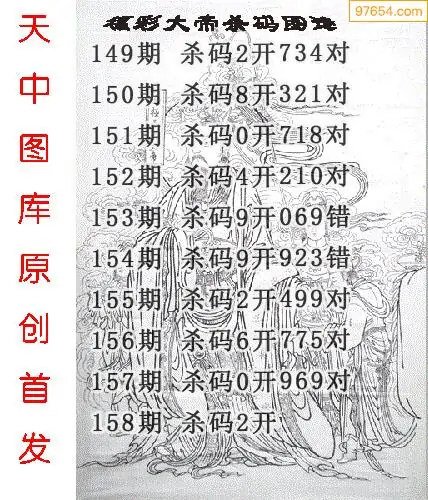 97654.com
福彩大帝杀码图迷
149期 杀码2开734对
150期 杀码8开321对
151期 杀码0开718对
152期 杀码4开210对
153期 杀码9开069错
154期 杀码9开923错
155期 杀码2开499对
156期 杀码6开775对
157期 杀码0开969对
158期 杀码2开
天中图库原创首发